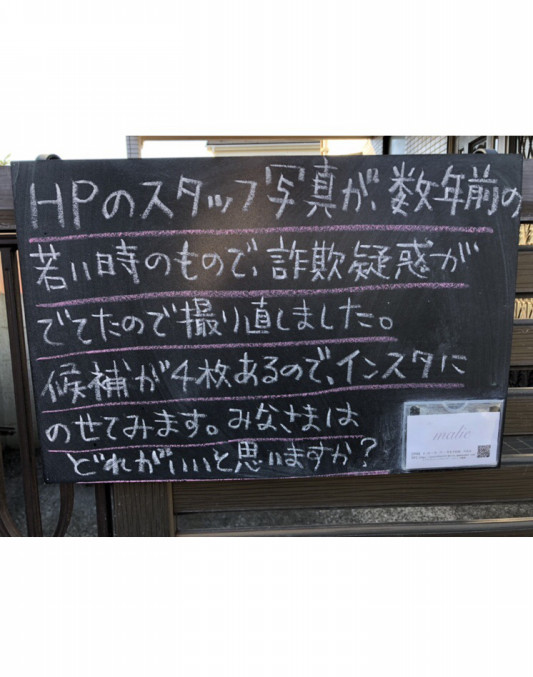 HPのスタッフ写真が、数年前の
若い時のもので、詐欺疑惑が
でてたので撮り直しました。
候補が4枚あるので、インスタに
のせてみます。みなさまは
どれがいいと思いますか?
malie